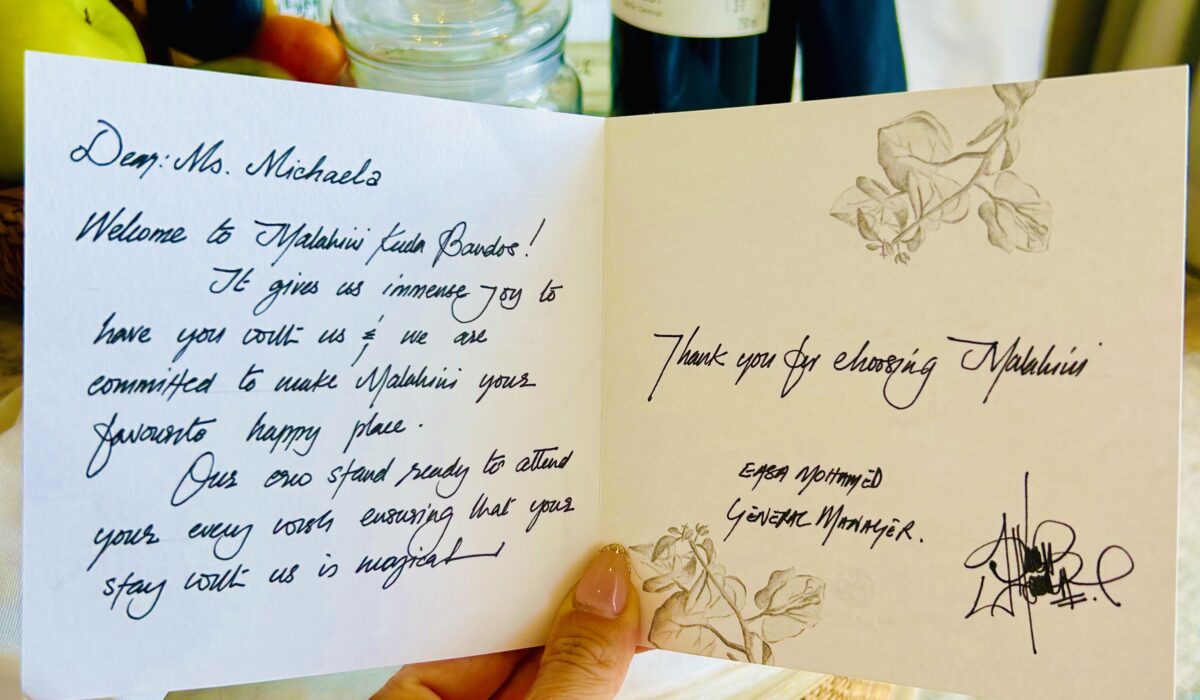 Dear: Ms. Michaela
Welcome to Malahini Kuda Bandos!
It gives us immense joy to
have you with us & we are
committed to make Malahini your
favourite happy place.
Our crew stand ready to attend
your every wish ensuring that your
stay with us is magical
Thank you for choosing Malahini
EASA MOHAMED
GENERAL MANAGER.